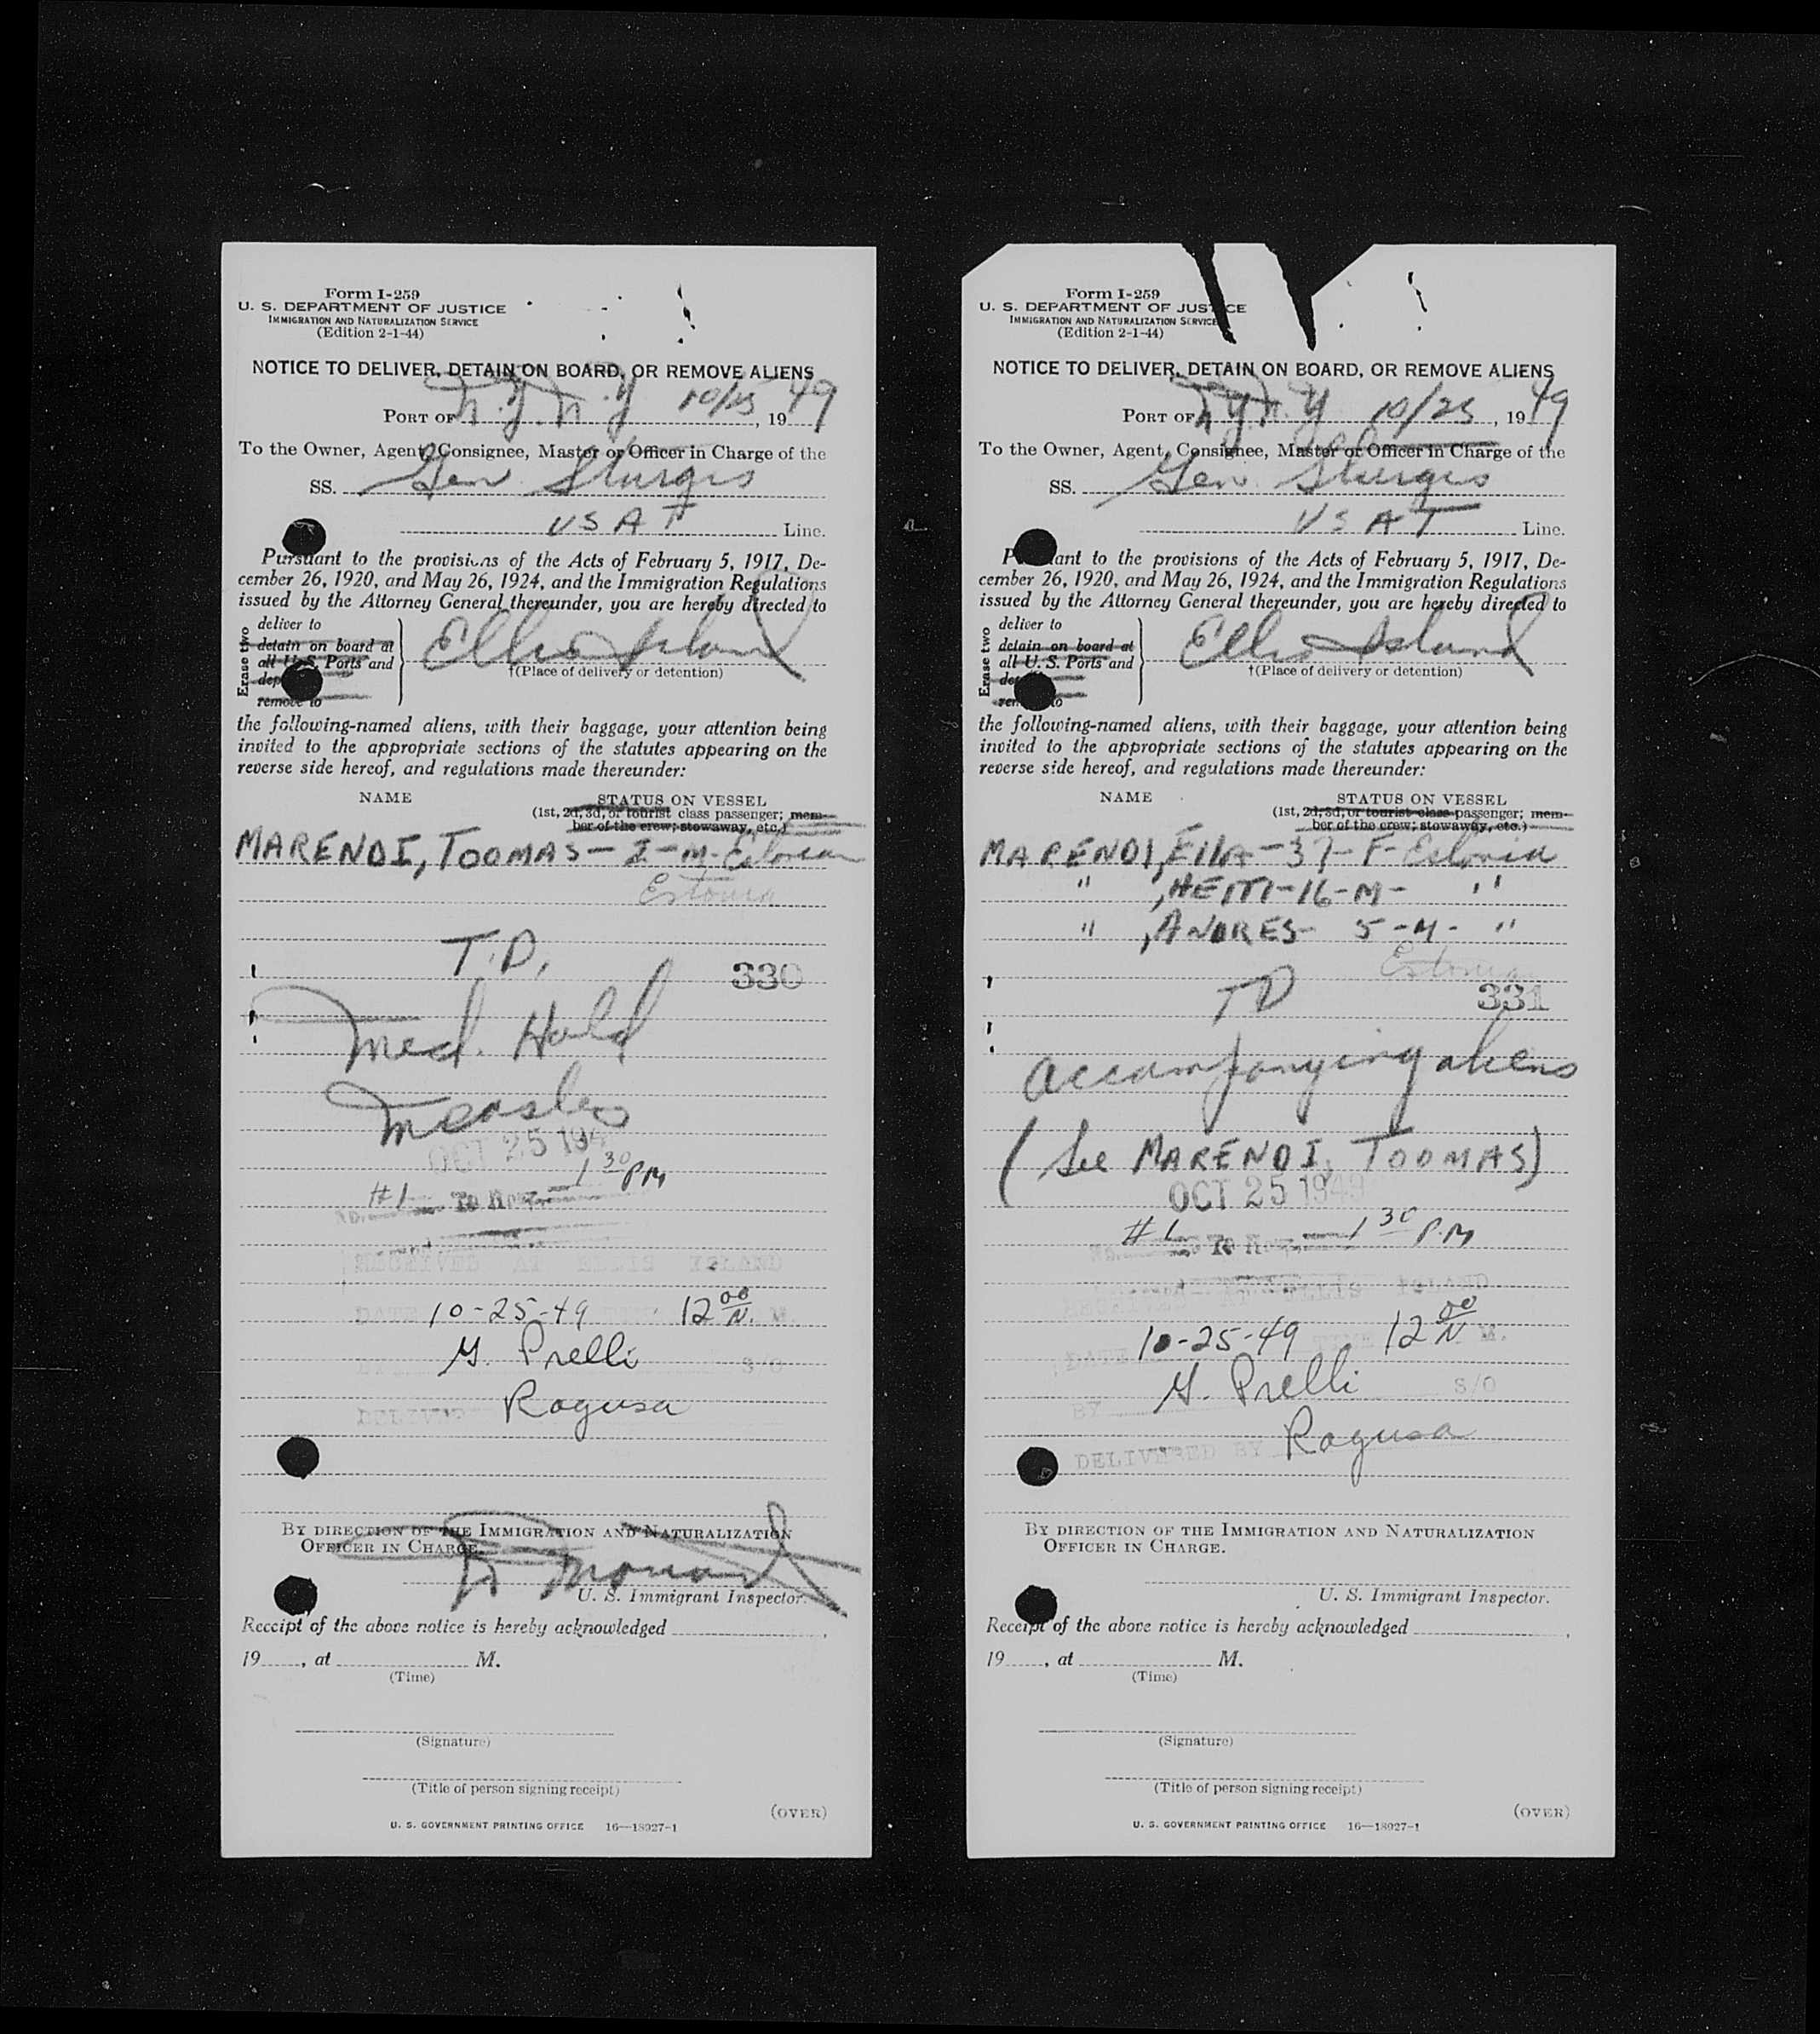 Form I-259
U. S. DEPARTMENT OF JUSTICE
IMMIGRATION AND NATURALIZATION SERVICE
(Edition 2-1-44)
NOTICE TO DELIVER, DETAIN ON BOARD, OR REMOVE ALIENS
PORT OF N.Y. N.Y 10/25, 1949
To the Owner, Agent, Consignee, Master or Officer in Charge of the
SS. Gen. Sturgis
USAT Line.
Pursuant to the provisions of the Acts of February 5, 1917, De-
cember 26, 1920, and May 26, 1924, and the Immigration Regulations
issued by the Attorney General thereunder, you are hereby directed to
Erase two
deliver to
detain on board at
all U. S. Ports and
remove to
Ellis Island
†(Place of delivery or detention)
the following-named aliens, with their baggage, your attention being
invited to the appropriate sections of the statutes appearing on the
reverse side hereof, and regulations made thereunder:
NAME STATUS ON VESSEL
(1st, 2d, 3d, or tourist class passenger; mem-
ber of the crew; stowaway, etc.)
MARENDI, TOOMAS - 2 - M - Estonian
Estonia
T.D.
330
Med. Hold
Measles
OCT 25 194
#1 To 1 30 PM
RECEIVED AT ELLIS ISLAND
DATE 10-25-49 12 00 N. M.
G. Prelli S/O
Ragusa
BY DIRECTION OF THE IMMIGRATION AND NATURALIZATION
OFFICER IN CHARGE.
U. S. Immigrant Inspector.
Receipt of the above notice is hereby acknowledged
19, at M.
(Time)
(Signature)
(Title of person signing receipt)
(OVER)
U. S. GOVERNMENT PRINTING OFFICE 16—18927-1
Form I-259
U. S. DEPARTMENT OF JUSTICE
IMMIGRATION AND NATURALIZATION SERVICE
(Edition 2-1-44)
NOTICE TO DELIVER, DETAIN ON BOARD, OR REMOVE ALIENS
PORT OF N.Y. N.Y 10/25, 1949
To the Owner, Agent, Consignee, Master or Officer in Charge of the
SS. Gen. Sturgis
USAT Line.
Pursuant to the provisions of the Acts of February 5, 1917, De-
cember 26, 1920, and May 26, 1924, and the Immigration Regulations
issued by the Attorney General thereunder, you are hereby directed to
Erase two
deliver to
detain on board at
all U. S. Ports and
remove to
Ellis Island
†(Place of delivery or detention)
the following-named aliens, with their baggage, your attention being
invited to the appropriate sections of the statutes appearing on the
reverse side hereof, and regulations made thereunder:
NAME STATUS ON VESSEL
(1st, 2d, 3d, or tourist class passenger; mem-
ber of the crew; stowaway, etc.)
MARENDI, Ella - 37 - F - Estonia
" , HEITI - 16 - M - "
" , ANDRES - 5 - M - "
Estonia
TD
331
accompanying aliens
(See MARENDI, TOOMAS)
OCT 25 1949
#1 To 1 30 P.M
AT ELLIS ISLAND
DATE 10-25-49 TIME 12 00 N M.
BY G. Prelli S/O
DELIVERED BY Ragusa
BY DIRECTION OF THE IMMIGRATION AND NATURALIZATION
OFFICER IN CHARGE.
U. S. Immigrant Inspector.
Receipt of the above notice is hereby acknowledged
19, at M.
(Time)
(Signature)
(Title of person signing receipt)
(OVER)
U. S. GOVERNMENT PRINTING OFFICE 16—18927-1